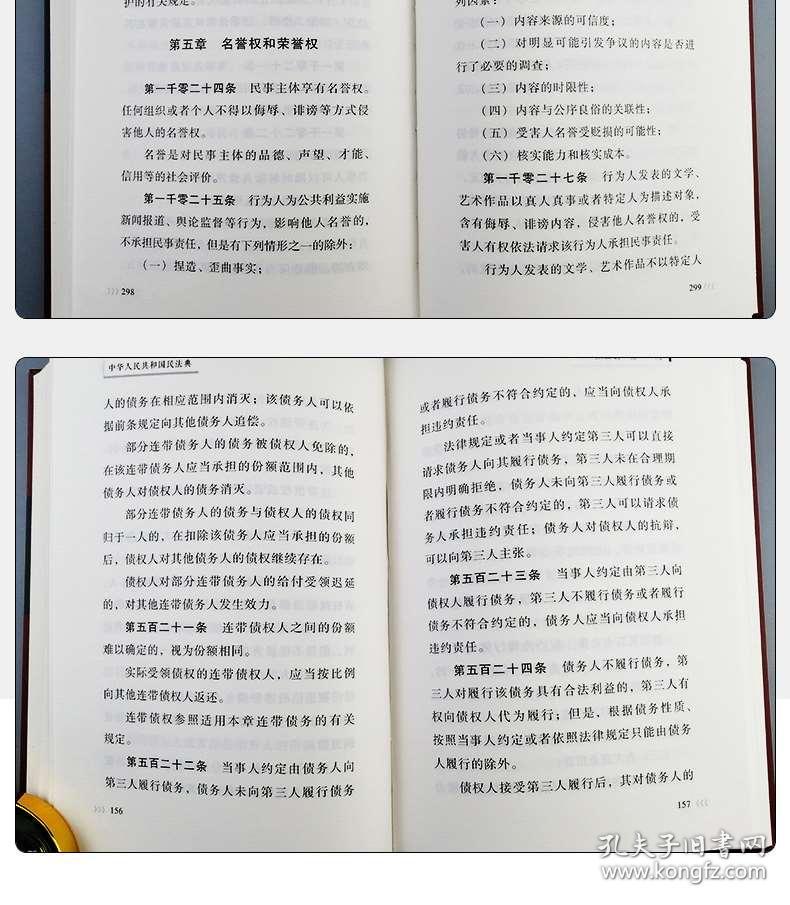 护的有关规定。
第五章 名誉权和荣誉权
第一千零二十四条 民事主体享有名誉权。
任何组织或者个人不得以侮辱、诽谤等方式侵
害他人的名誉权。
名誉是对民事主体的品德、声望、才能、
信用等的社会评价。
第一千零二十五条 行为人为公共利益实施
新闻报道、舆论监督等行为，影响他人名誉的，
不承担民事责任，但是有下列情形之一的除外：
（一）捏造、歪曲事实；
298
列因素：
（一）内容来源的可信度；
（二）对明显可能引发争议的内容是否进
行了必要的调查；
（三）内容的时限性；
（四）内容与公序良俗的关联性；
（五）受害人名誉受贬损的可能性；
（六）核实能力和核实成本。
第一千零二十七条 行为人发表的文学、
艺术作品以真人真事或者特定人为描述对象，
含有侮辱、诽谤内容，侵害他人名誉权的，受
害人有权依法请求该行为人承担民事责任。
行为人发表的文学、艺术作品不以特定人
299
中华人民共和国民法典
人的债务在相应范围内消灭；该债务人可以依
据前条规定向其他债务人追偿。
部分连带债务人的债务被债权人免除的，
在该连带债务人应当承担的份额范围内，其他
债务人对债权人的债务消灭。
部分连带债务人的债务与债权人的债权同
归于一人的，在扣除该债务人应当承担的份额
后，债权人对其他债务人的债权继续存在。
债权人对部分连带债务人的给付受领迟延
的，对其他连带债务人发生效力。
第五百二十一条 连带债权人之间的份额
难以确定的，视为份额相同。
实际受领债权的连带债权人，应当按比例
向其他连带债权人返还。
连带债权参照适用本章连带债务的有关
规定。
第五百二十二条 当事人约定由债务人向
第三人履行债务，债务人未向第三人履行债务
156
或者履行债务不符合约定的，应当向债权人承
担违约责任。
法律规定或者当事人约定第三人可以直接
请求债务人向其履行债务，第三人未在合理期
限内明确拒绝，债务人未向第三人履行债务或
者履行债务不符合约定的，第三人可以请求债
务人承担违约责任；债务人对债权人的抗辩，
可以向第三人主张。
第五百二十三条 当事人约定由第三人向
债权人履行债务，第三人不履行债务或者履行
债务不符合约定的，债务人应当向债权人承担
违约责任。
第五百二十四条 债务人不履行债务，第
三人对履行该债务具有合法利益的，第三人有
权向债权人代为履行；但是，根据债务性质、
按照当事人约定或者依照法律规定只能由债务
人履行的除外。
债权人接受第三人履行后，其对债务人的
157
孔夫子旧书网
www.kongfz.com